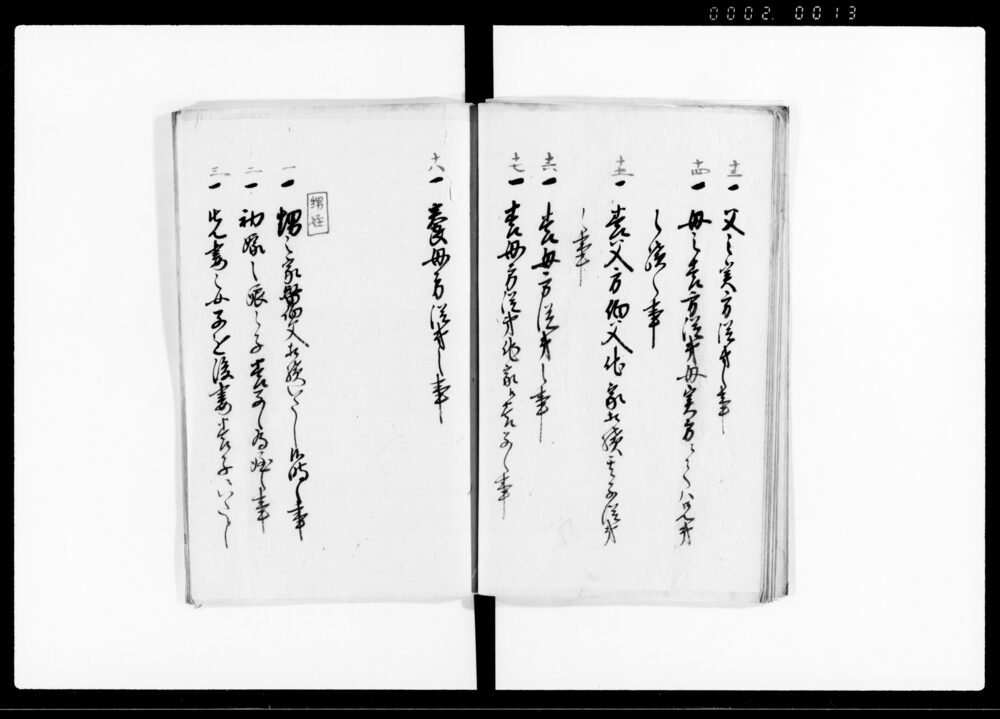 0002.0013
十三一 父之実方従弟之事
十四一 母之養方従弟母実方ニ而ハ兄弟
之続之事
十五一 養父方伯父他家相続其子従弟
之事
十六一 養母方従弟之事
十七一 養母方従弟他家之養子之事
十八一 養母方従弟之事
甥姪
一一 甥之家督伯父相続いたし候時之事
二一 之子養子之為姪之事
三一 先妻之女子を後妻養子ニいたし